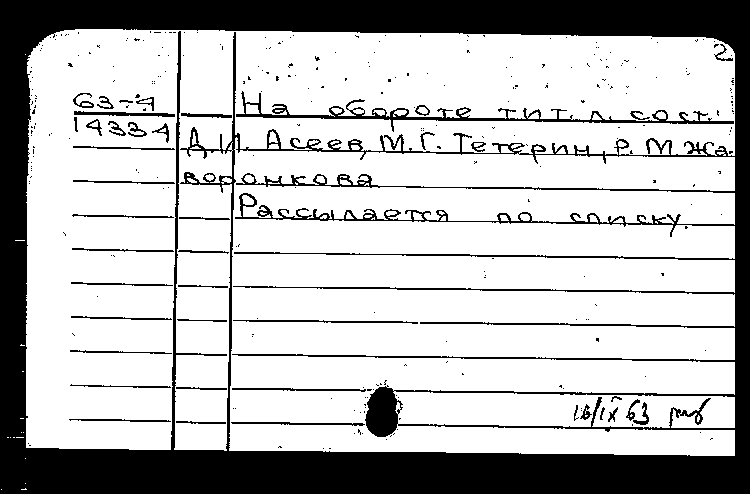 2
63-4 На обороте тит. л. сост.:
14334 Д.И. Асеев, М.Г. Тетерин, Р.М. Жа-
воронкова
Рассылается по списку.
16/IX 63